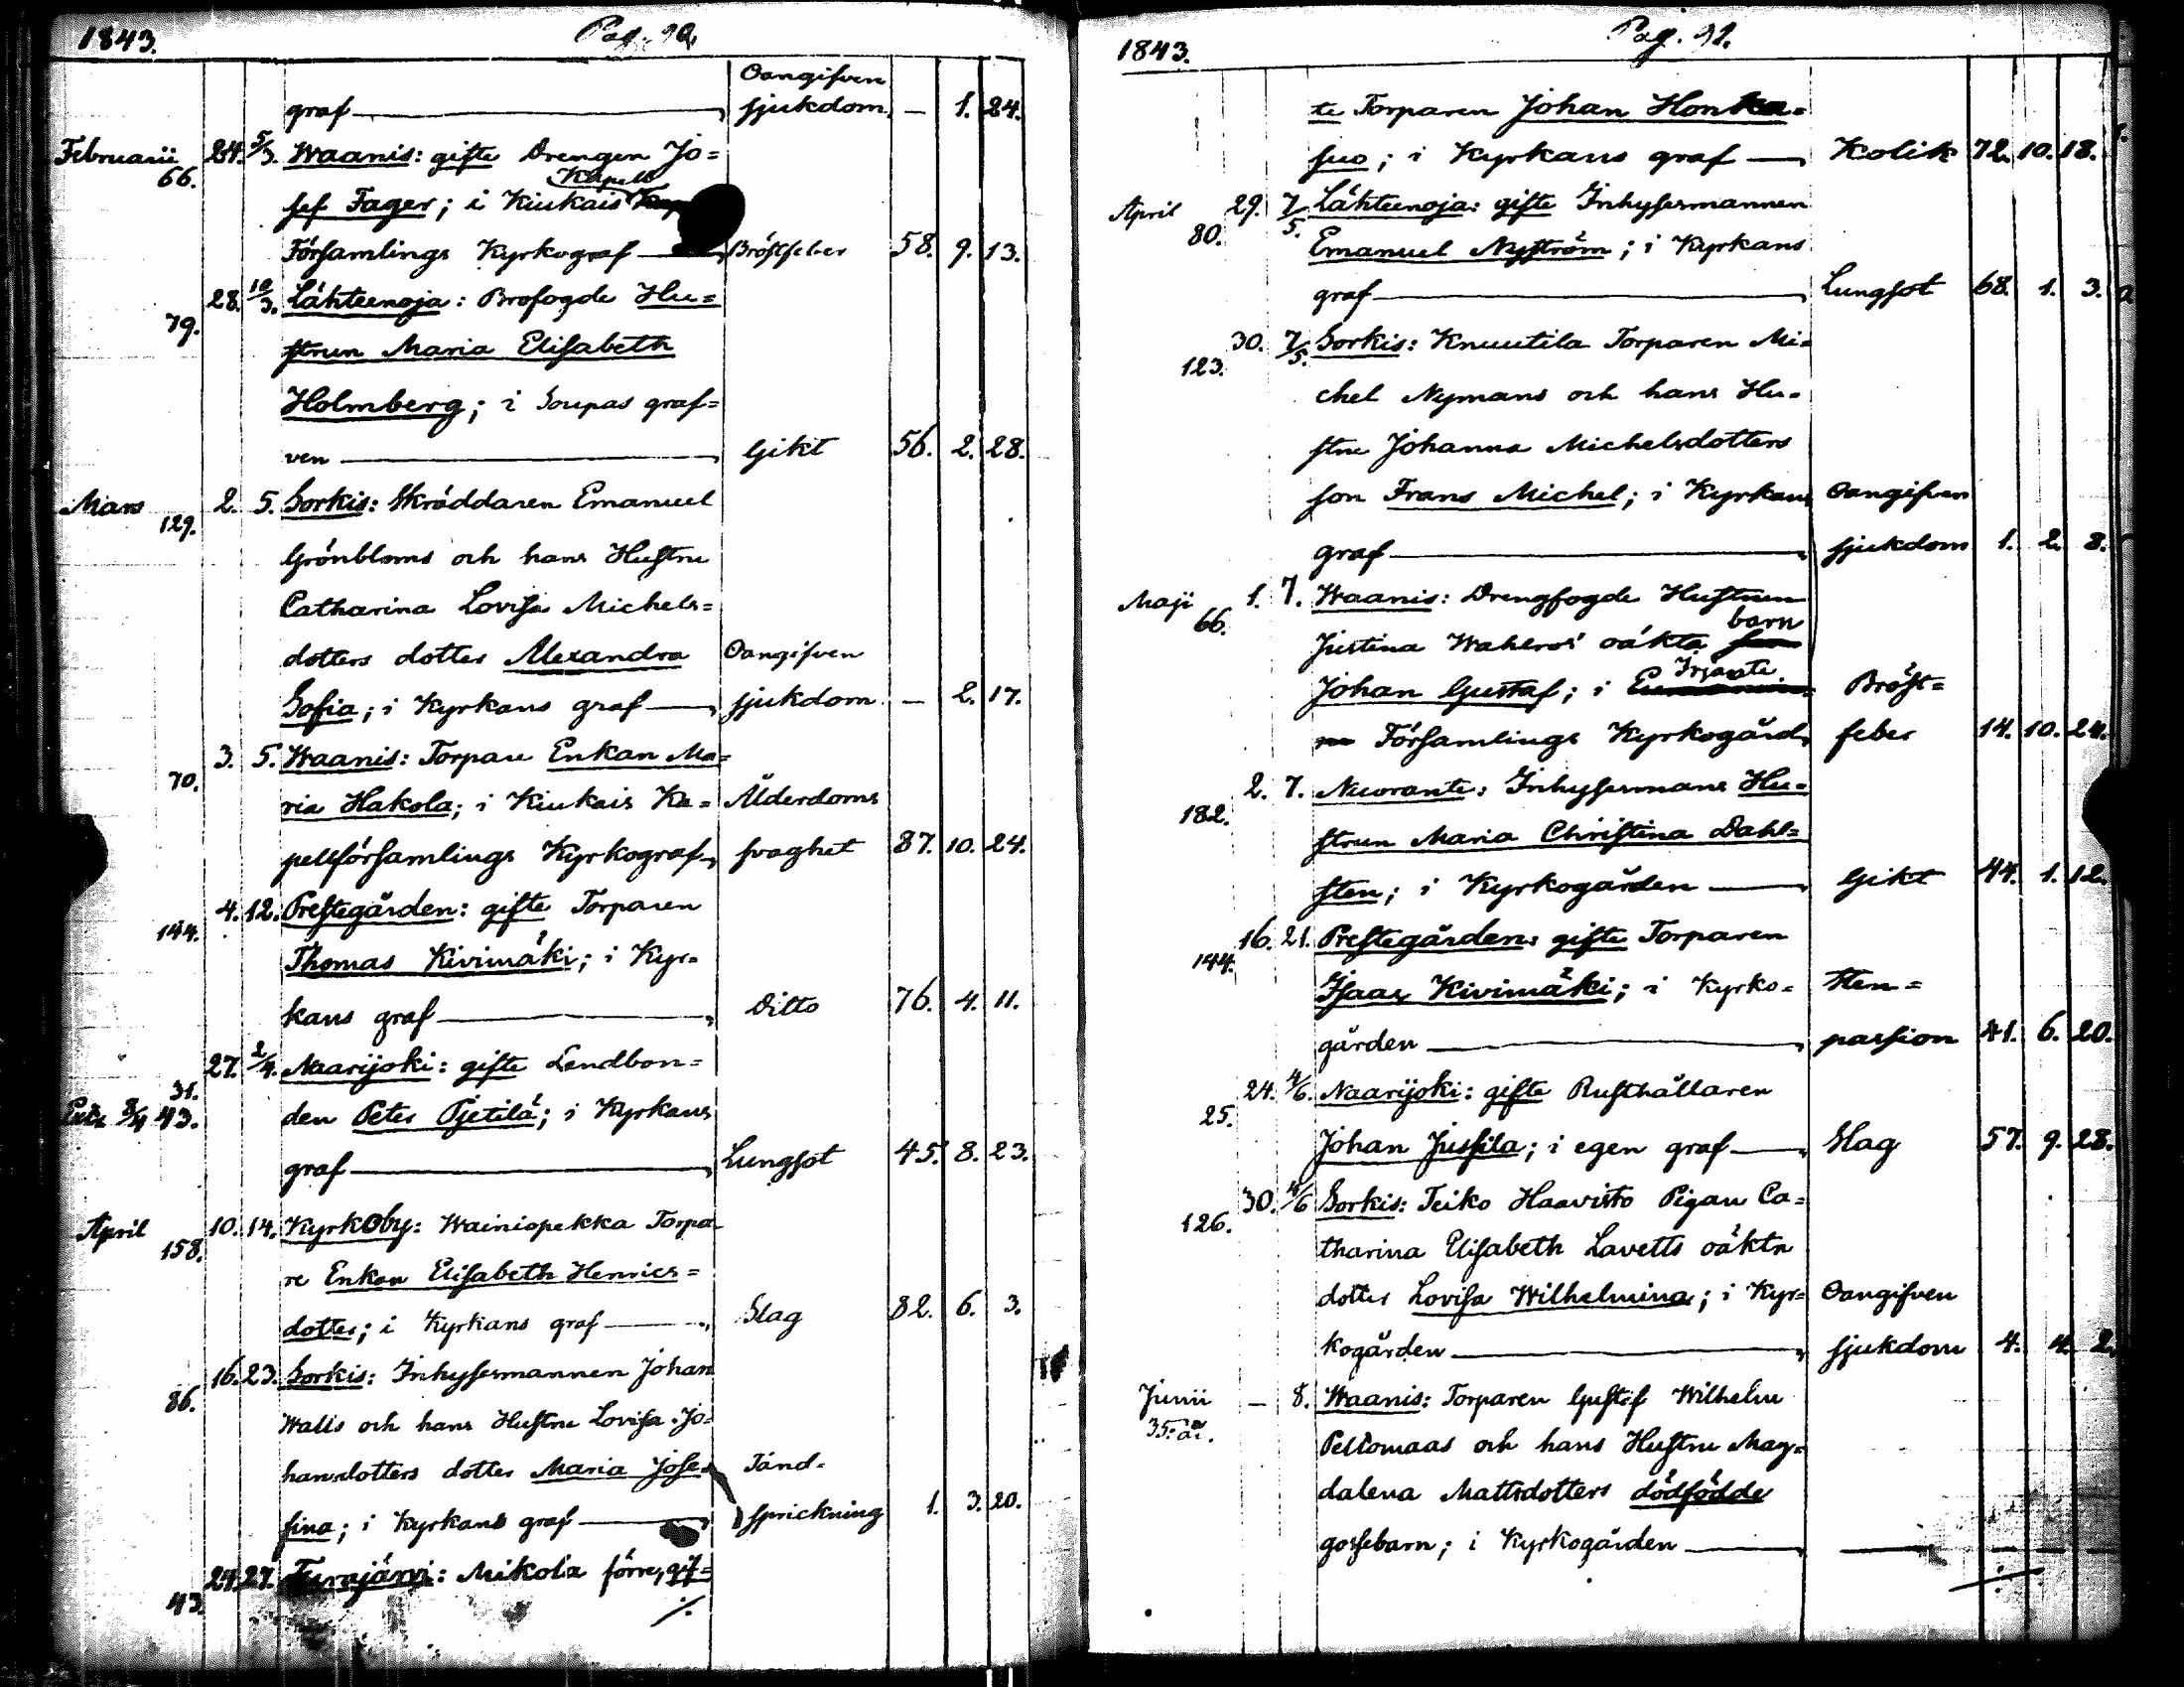 1843.
Pag. 90.
Oangifven
graf — sjukdom. — 1. 24.
Februarii 24. 5/3. Waanis: gifte Drengen Jo=
66.
Kapell
sef Fager; i Kiukais
Församlings Kyrkograf — Bröstfeber 58. 9. 13.
28. 10/3. Lähteenoja: Brofogde Hu=
79.
strun Maria Elisabeth
Holmberg; i Soupas graf=
ven — Gikt 56. 2. 28.
Mars 2. 5. Sorkis: Skräddaren Emanuel
129.
Grönbloms och hans Hustru
Catharina Lovisa Michels=
dotters dotter Alexandra Oangifven
Sofia; i Kyrkans graf — sjukdom. — 2. 17.
3. 5. Waanis: Torpare Enkan Ma=
70.
ria Hakola; i Kiukais Ka= Ålderdoms
pellförsamlings Kyrkograf, svaghet 87. 10. 24.
4. 12. Prestegården: gifte Torparen
144.
Thomas Kivimäki; i Kyr=
kans graf — Ditto 76. 4. 11.
27. 2/4. Naarijoki: gifte Landbon=
31.
43. den Peter Pjetilä; i Kyrkans
graf — Lungsot 45. 8. 23.
April 10. 14. Kyrkoby: Wainiopekka Torpa
158.
re Enkan Elisabeth Henrics=
dotter; i Kyrkans graf — Slag 82. 6. 3.
16. 23. Sorkis: Inhysesmannen Johan
86.
Walls och hans Hustru Lovisa Jo=
hansdotters dotter Maria Jose= Tand=
fina; i Kyrkans graf — sprickning 1. 3. 20.
24. 27. Turajärvi: Mikola förre, gif=
43.
./.
1843.
Pag. 91.
te Torparen Johan Honka=
suo; i Kyrkans graf — Kolik 72. 10. 18.
April 29. 7/5. Lähteenoja: gifte Inhysesmannen
80.
Emanuel Nyström; i Kyrkans
graf — Lungsot 68. 1. 3.
30. 7/5. Sorkis: Knuutila Torparen Mi=
123.
chel Nymans och hans Hu=
stru Johanna Michelsdotters
son Frans Michel; i Kyrkans Oangifven
graf — sjukdom 1. 2. 8.
Maji 1. 7. Waanis: Drengfogde Hustrun
66.
barn
Justina Wahlros' oäkta
Irjante
Johan Gustaf; i Bröst=
Församlings Kyrkogård, feber 14. 10. 24.
2. 7. Neuvante: Inhysesmans Hu=
182.
strun Maria Christina Dahl=
sten; i Kyrkogården — Gikt 44. 1. 12.
16. 21. Prestegården: gifte Torparen
144.
Isaac Kivimäki; i Kyrko= Sten=
gården — passion 41. 6. 20.
24. 4/6. Naarijoki: gifte Rusthållaren
25.
Johan Jussila; i egen graf — Slag 57. 9. 28.
30. 4/6 Sorkis: Teiko Haavisto Pigan Ca=
126.
tharina Elisabeth Lavetts oäkta
dotter Lovisa Wilhelmina; i Kyr= Oangifven
kogården — sjukdom 4. 4. 2.
Junii — 8. Waanis: Torparen Gustaf Wilhelm
35. år.
Peltomaas och hans Hustru Mag=
dalena Mattsdotters dödfödde
gossebarn; i Kyrkogården —
./.